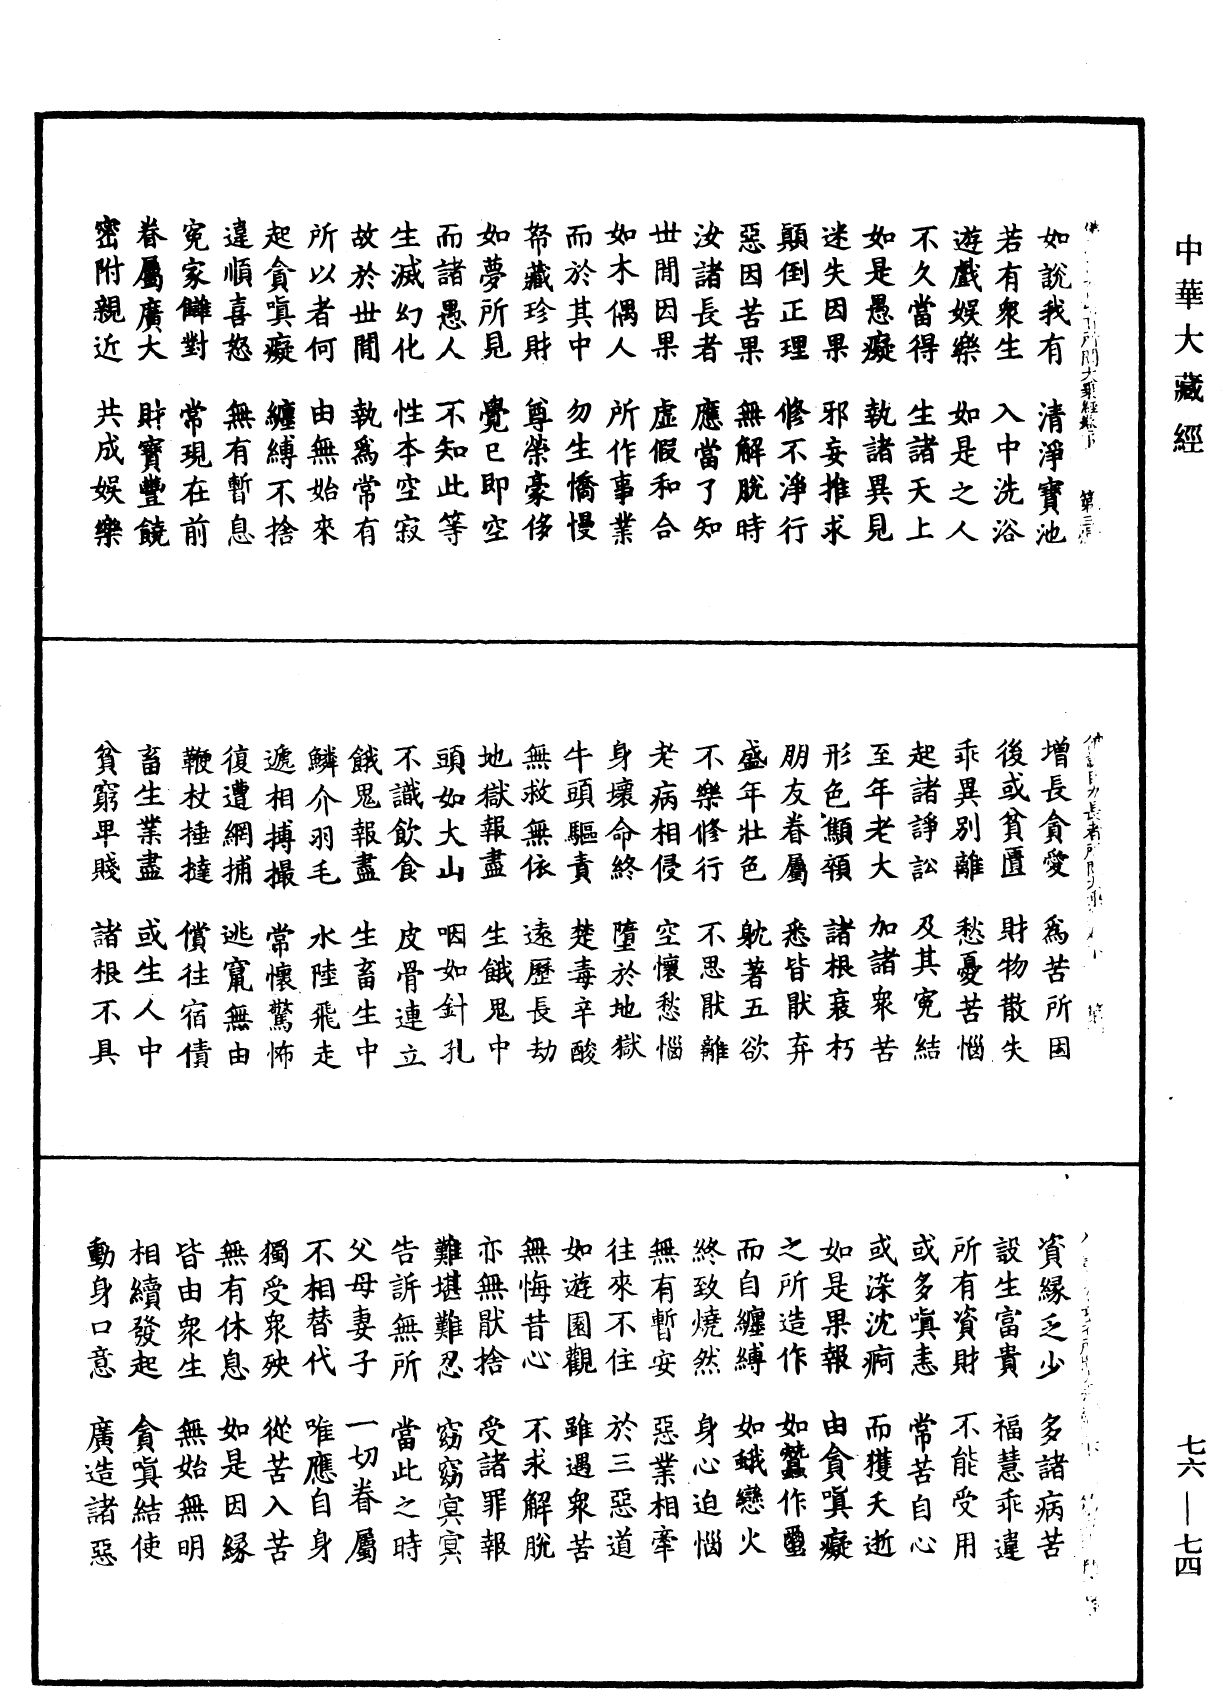 中華大藏經
如說我有 清淨寶池
若有衆生 入中洗浴
遊戲娛樂 如是之人
不久當得 生諸天上
如是愚癡 執諸異見
迷失因果 邪妄推求
顛倒正理 修不淨行
惡因苦果 無解脫時
汝諸長者 應當了知
世閒因果 虛假和合
如木偶人 所作事業
而於其中 勿生憍慢
帑藏珍財 尊榮豪侈
如夢所見 覺已即空
而諸愚人 不知此等
生滅幻化 性本空寂
故於世閒 執爲常有
所以者何 由無始來
起貪嗔癡 纏縛不捨
違順喜怒 無有暫息
冤家讎對 常現在前
眷屬廣大 財寶豐饒
密附親近 共成娛樂
增長貪愛 爲苦所因
後或貧匱 財物散失
乖異別離 愁憂苦惱
起諸諍訟 及其冤結
至年老大 加諸衆苦
形色顦顇 諸根衰朽
朋友眷屬 悉皆猒弃
盛年壯色 躭著五欲
不樂修行 不思猒離
老病相侵 空懷愁惱
身壞命終 墮於地獄
牛頭驅責 楚毒辛酸
無救無依 遠歷長劫
地獄報盡 生餓鬼中
頭如大山 咽如針孔
不識飲食 皮骨連立
餓鬼報盡 生畜生中
鱗介羽毛 水陸飛走
遞相搏撮 常懷驚怖
復遭網捕 逃竄無由
鞭杖捶撻 償往宿債
畜生業盡 或生人中
貧窮卑賤 諸根不具
資緣乏少 多諸病苦
設生富貴 福慧乖違
所有資財 不能受用
或多嗔恚 常苦自心
或染沈痾 而獲夭逝
如是果報 由貪嗔癡
之所造作 如蠶作蠒
而自纏縛 如蛾戀火
終致燒然 身心迫惱
無有暫安 惡業相牽
往來不住 於三惡道
如遊園觀 雖遇衆苦
無悔昔心 不求解脫
亦無猒捨 受諸罪報
難堪難忍 窈窈冥冥
告訴無所 當此之時
父母妻子 一切眷屬
不相替代 唯應自身
獨受衆殃 從苦入苦
無有休息 如是因緣
皆由衆生 無始無明
相續發起 貪嗔結使
動身口意 廣造諸惡
七六—七四